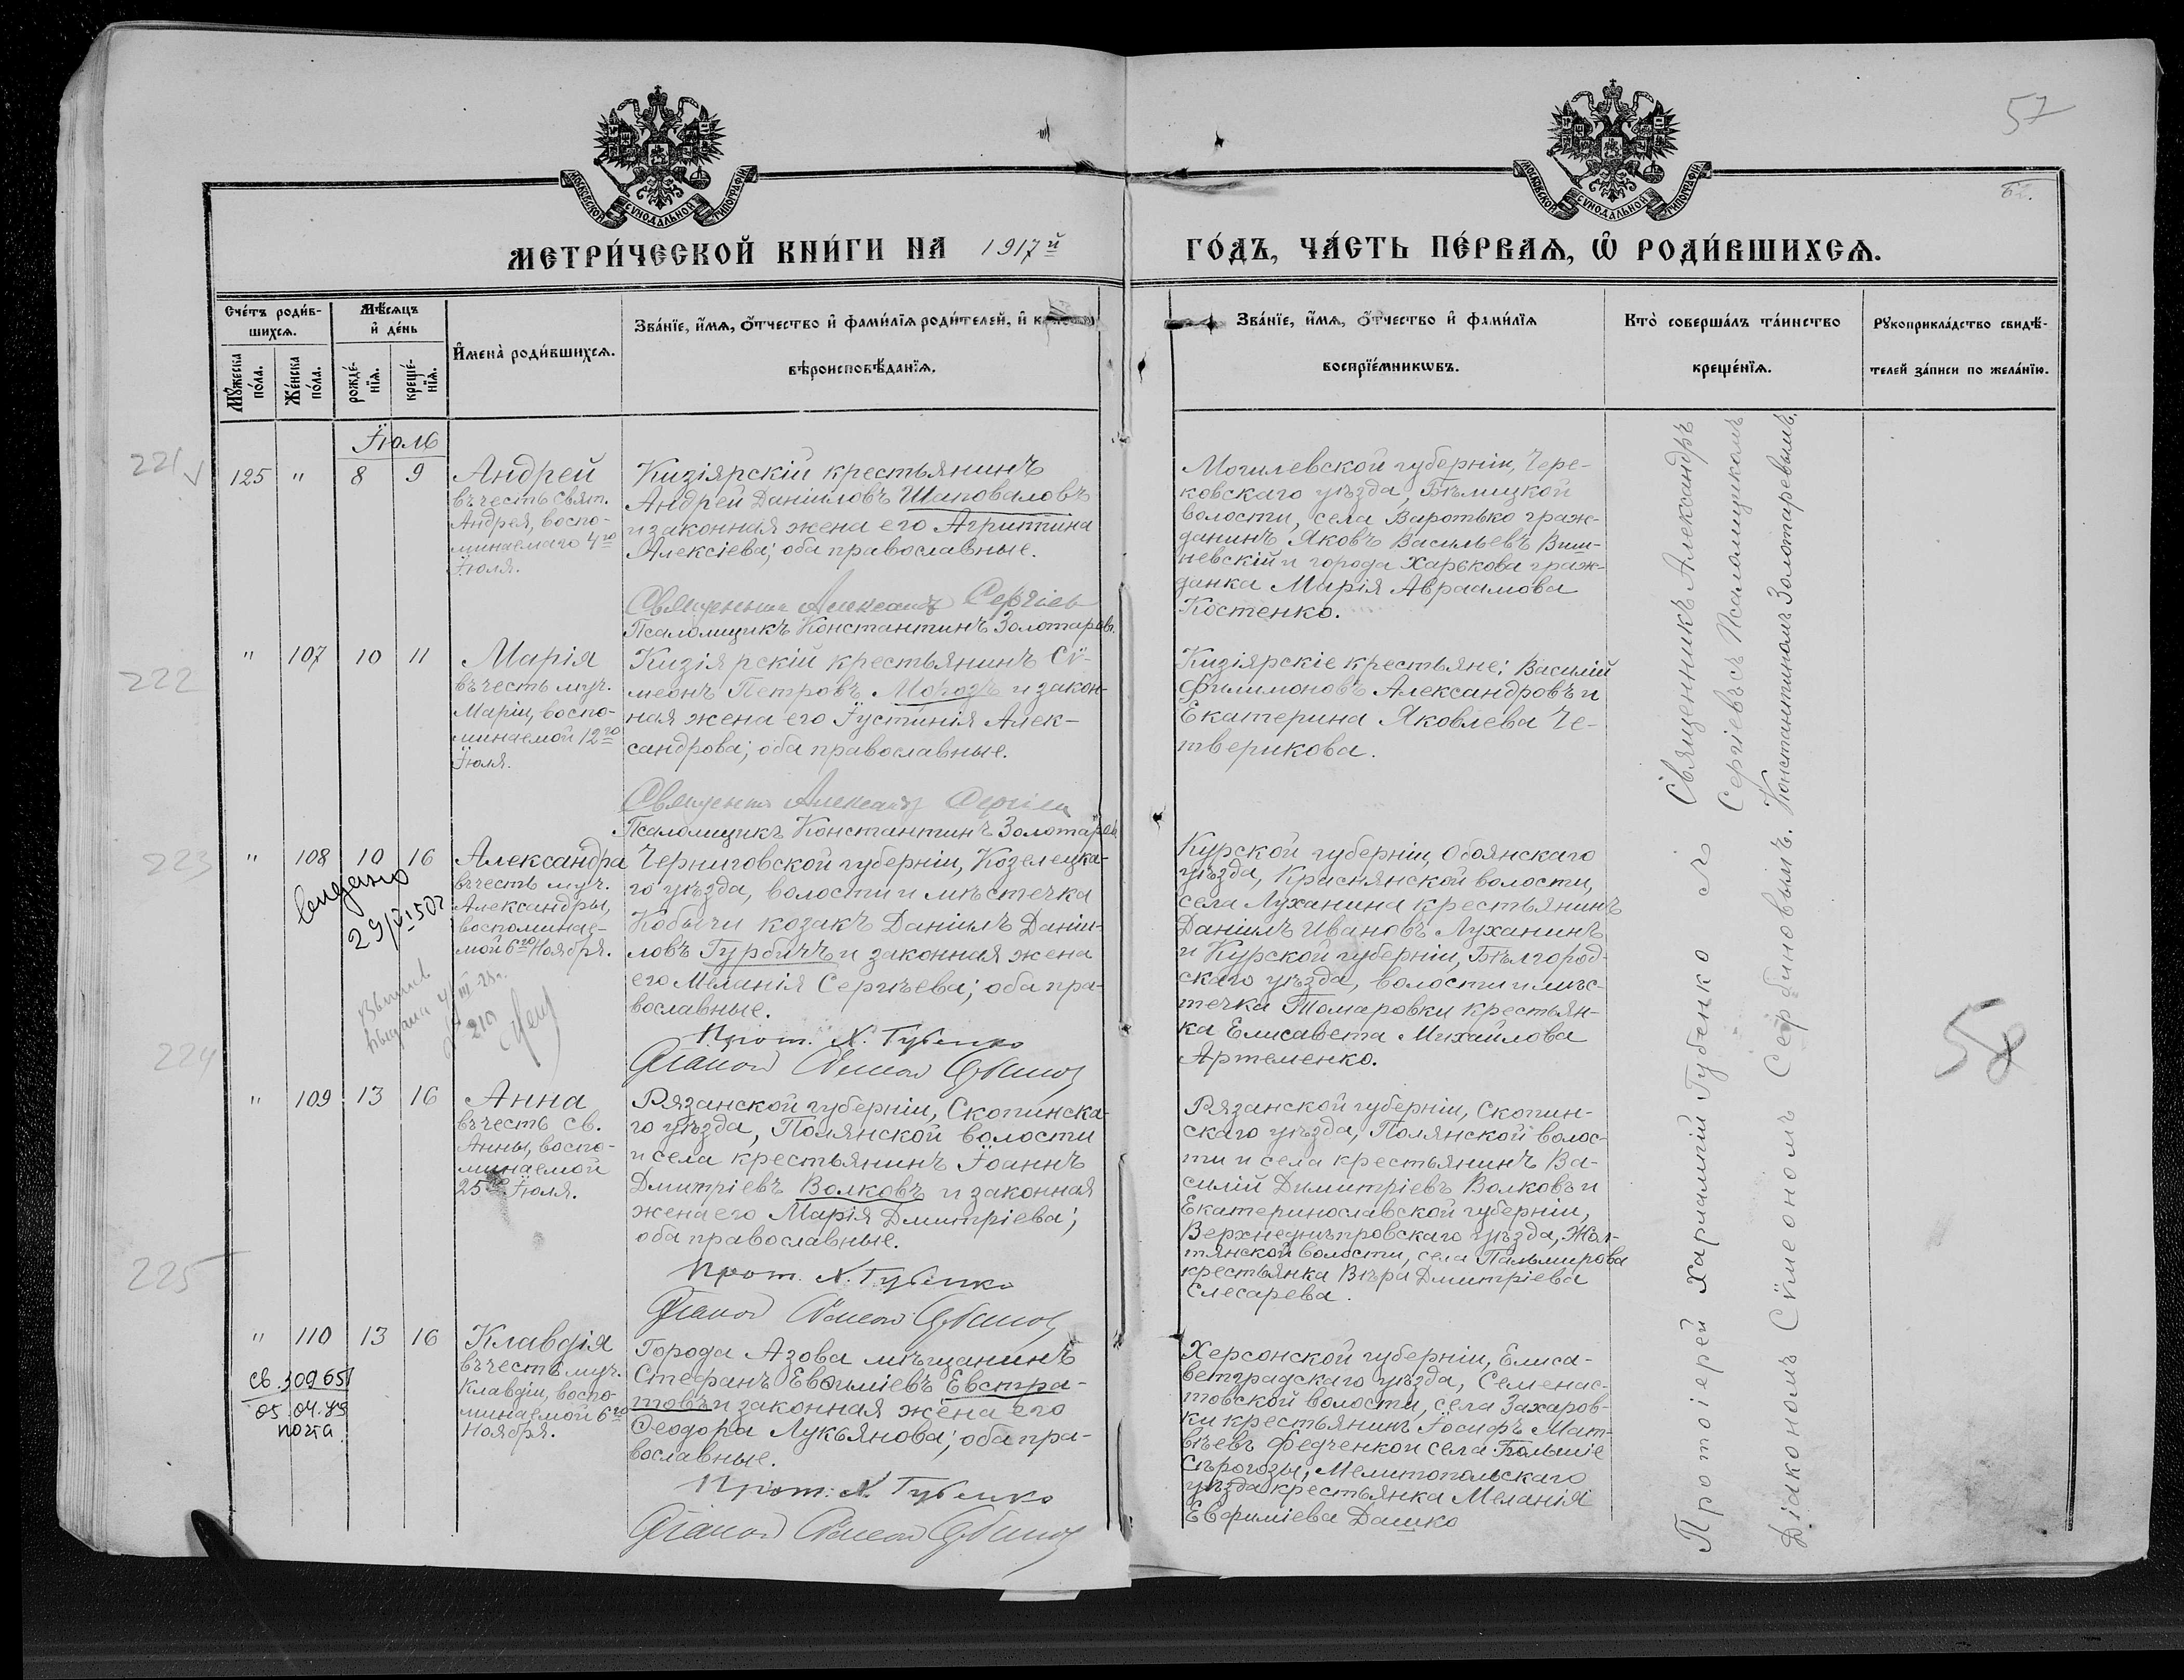 57
62.
МОСКОВСКОЙ СУНОДАЛЬНОЙ ТИПОГРАФІИ
МОСКОВСКОЙ СУНОДАЛЬНОЙ ТИПОГРАФІИ
МЕТРИ́ЧЕСКОЙ КНИ́ГИ НА 1917й ГО́ДЪ, ЧА́СТЬ ПЕ́РВАѦ, Ѡ РОДИ́ВШИХСѦ.
Сче́тъ роди́в-
шихсѧ.
Мꙋ́жеска
по́ла.
Же́нска
по́ла.
Мѣ́сѧцъ
и҆ де́нь
рожде́-
нїѧ.
креще́-
нїѧ.
И҆мена̀ роди́вшихсѧ.
Зва́нїе, и҆́мѧ, ѻ҆́тчество и҆ фами́лїѧ роди́телей, и҆
вѣроисповѣ́данїѧ.
Зва́нїе, и҆́мѧ, ѻ҆́тчество и҆ фами́лїѧ
воспрїе́мникѡвъ.
Кто̀ соверша́лъ та́инство
креще́нїѧ.
Рꙋкоприкла́дство свидѣ́-
телей за́писи по жела́нїю.
Іюль
221
125 " 8 9
Андрей
въ честь Свят.
Андрея, воспо-
минаемаго 4го
Іюля.
Кизіярскій крестьянинъ
Андрей Даніиловъ Шаповаловъ
и законная жена его Агриппина
Алексіева; оба православные.
Священникъ Александръ Сергіевъ
Псаломщикъ Константинъ Золотаревъ.
Могилевской губерніи, Чере-
ковскаго уѣзда, Бѣлицкой
волости, села Варотько граж-
данинъ Яковъ Васильевъ Виш-
невскій и города Харькова граж-
данка Марія Авраамова
Костенко.
222
" 107 10 11
Марія
въ честь муч.
Маріи, воспо-
минаемой 12го
Іюля.
Кизіярскій крестьянинъ Сѵ-
меонъ Петровъ Морозъ и закон-
ная жена его Іустинія Алек-
сандрова; оба православные.
Священникъ Александръ Сергіевъ
Псаломщикъ Константинъ Золотарев
Кизіярскіе крестьяне: Василій
Филимоновъ Александровъ и
Екатерина Яковлева Че-
тверикова.
223
" 108 10 16
видано
Александра
въ честь муч.
Александры,
воспоминае-
мой 6го Ноября.
Черниговской губерніи, Козелецка-
го уѣзда, волости и мѣстечка
Кобычи козакъ Даніилъ Даніи-
ловъ Гурбичъ и законная жена
его Меланія Сергѣева; оба пра-
вославные.
Прот. Х. Губенко
Діаконъ Сѵмеонъ Сербиновъ
Курской губерніи, Обоянскаго
уѣзда, Краснянской волости,
села Луханина крестьянинъ
Даніилъ Ивановъ Луханинъ
и Курской губерніи, Бѣлгород-
скаго уѣзда, волости и мѣс-
течка Томаровки крестьян-
ка Елисавета Михайлова
Артеменко.
224
" 109 13 16
Анна
въ честь св.
Анны, воспо-
минаемой
25го Іюля.
Рязанской губерніи, Скопинска-
го уѣзда, Полянской волости
и села крестьянинъ Іоаннъ
Дмитріевъ Волковъ и законная
жена его Марія Дмитріева;
оба православные.
Прот. Х. Губенко
Діаконъ Сѵмеонъ Сербиновъ
Рязанской губерніи, Скопин-
скаго уѣзда, Полянской волос-
ти и села крестьянинъ Ва-
силій Димитріевъ Волковъ и
Екатеринославской губерніи,
Верхнеднѣпровскаго уѣзда, Жол-
тянской волости, села Пальмирова
крестьянка Вѣра Дмитріева
Слесарева.
225
" 110 13 16
св. 309651
05.04.
почта
Клавдія
въ честь муч.
Клавдіи, воспо-
минаемой 6го
Ноября.
Города Азова мѣщанинъ
Стефанъ Евѳиміевъ Евстра-
товъ и законная жена его
Ѳеодора Лукьянова; оба пра-
вославные.
Прот. Х. Губенко
Діаконъ Сѵмеонъ Сербиновъ
Херсонской губерніи, Елиса-
ветградскаго уѣзда, Семенас-
товской волости, села Захаров-
ки крестьянинъ Іосифъ Мат-
вѣевъ Федченко и села Большіе
Сѣрогозы, Мелитопольскаго
уѣзда крестьянка Меланія
Евфиміева Дашко
Священникъ Александръ
Сергіевъ съ Псаломщикомъ
Константиномъ Золотаревымъ.
Протоіерей Харлампій Губенко съ
Діакономъ Сѵмеономъ Сербиновымъ.
58